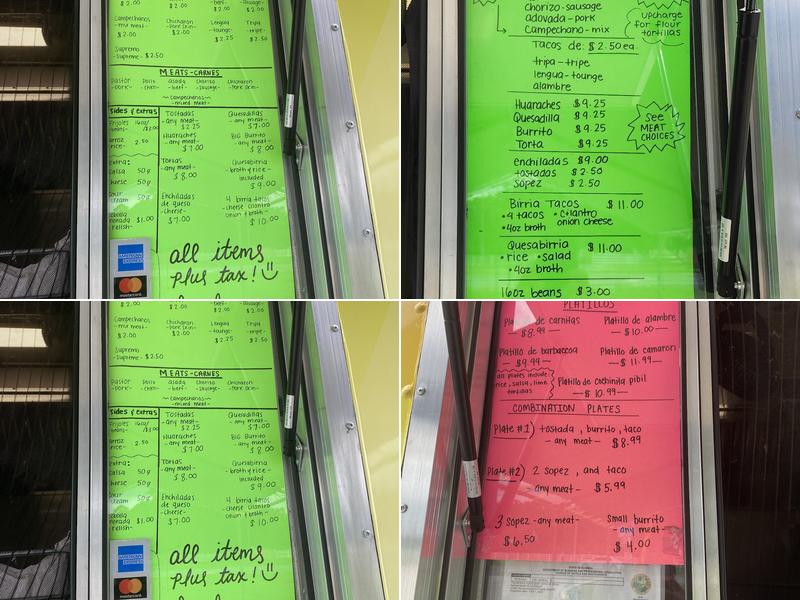 $2.00
Campechanos
-mix meat-
$2.00
Chicharon
-pork skin-
$2.00
-beef-
$2.00
Lengua
-tounge-
$2.25
-sausage-
$2.00
Tripa
-tripe-
$2.50
Supremo
- $2.50
MEATS-CARNES
Pastor
-pork-
Pollo
-chkn-
Asada
-beef-
Choriso
-sausage-
Chicharon
-pork skin-
-campechanos-
-mixed meat-
Sides & extras
Frijoles 16oz/
-beans- $3.00
Arroz
-rice- 2.50
Extra:
Salsa 50¢
Cheese 50¢
Sour
cream 50¢
$1.00
relish-
Tostadas
-any meat-
$2.25
Huaraches
-any meat-
$7.00
Tortas
-any meat-
$8.00
Enchiladas
de queso
-cheese-
$7.00
Quesadillas
-any meat-
$7.00
BIG Burrito
-any meat-
$8.00
Quesabirria
-broth y rice-
included
$9.00
4 birria tacos
-cheese cilantro
onion broth-
$10.00
all items
plus tax!
AMERICAN
EXPRESS
mastercard
chorizo-sausage
adovada-pork
Campechano-mix
upcharge
for flour
tortillas
Tacos de: $2.50ea.
tripa-tripe
lengua-tounge
alambre
Huaraches $9.25
Quesadilla $9.25
Burrito $9.25
Torta $9.25
See
MEAT
CHOICES
enchiladas $9.00
tostados $2.50
Sopez $2.50
Birria Tacos $11.00
•4 tacos •cilantro
onion cheese
•4oz broth
Quesabirria $11.00
•rice •salad
•4oz broth
16oz beans $3.00
$2.00
Campechanos
-mix meat-
$2.00
Chicharon
-pork skin-
$2.00
-beef-
$2.00
Lengua
-tounge-
$2.25
$2.00
Tripa
-tripe-
$2.50
Supremo
- $2.50
MEATS-CARNES
Pastor
-pork-
Pollo
-chkn-
Asada
-beef-
Choriso
-sausage-
Chicharon
-pork skin-
-campechanos-
-mixed meat-
Sides & extras
Frijoles 16oz/
-beans- $3.00
Arroz
-rice- 2.50
Extra:
Salsa 50¢
Cheese 50¢
Sour
cream 50¢
$1.00
relish-
Tostadas
-any meat-
$2.25
Huaraches
-any meat-
$7.00
Tortas
-any meat-
$8.00
Enchiladas
de queso
-cheese-
$7.00
Quesadillas
-any meat-
$7.00
BIG Burrito
-any meat-
$8.00
Quesabirria
-broth y rice-
included
$9.00
4 birria tacos
-cheese cilantro
onion broth-
$10.00
all items
plus tax!
AMERICAN
EXPRESS
mastercard
PLATILLOS
Platillo de carnitas
$8.99 —
Platillo de alambre
— $10.00 —
Platillo de barbacoa
— $9.99 —
Platillo de camaron
— $11.99 —
all plates include
rice, salsa, lime
tortillas
Platillo de cochinita pibil
— $10.99 —
COMBINATION PLATES
Plate #1) tostada, burrito, taco
- any meat - $8.99
Plate #2) 2 sopez, and taco
-any meat- $5.99
3 Sopez -any meat-
$6.50
Small burrito
-any meat-
$4.00
STATE OF FLORIDA